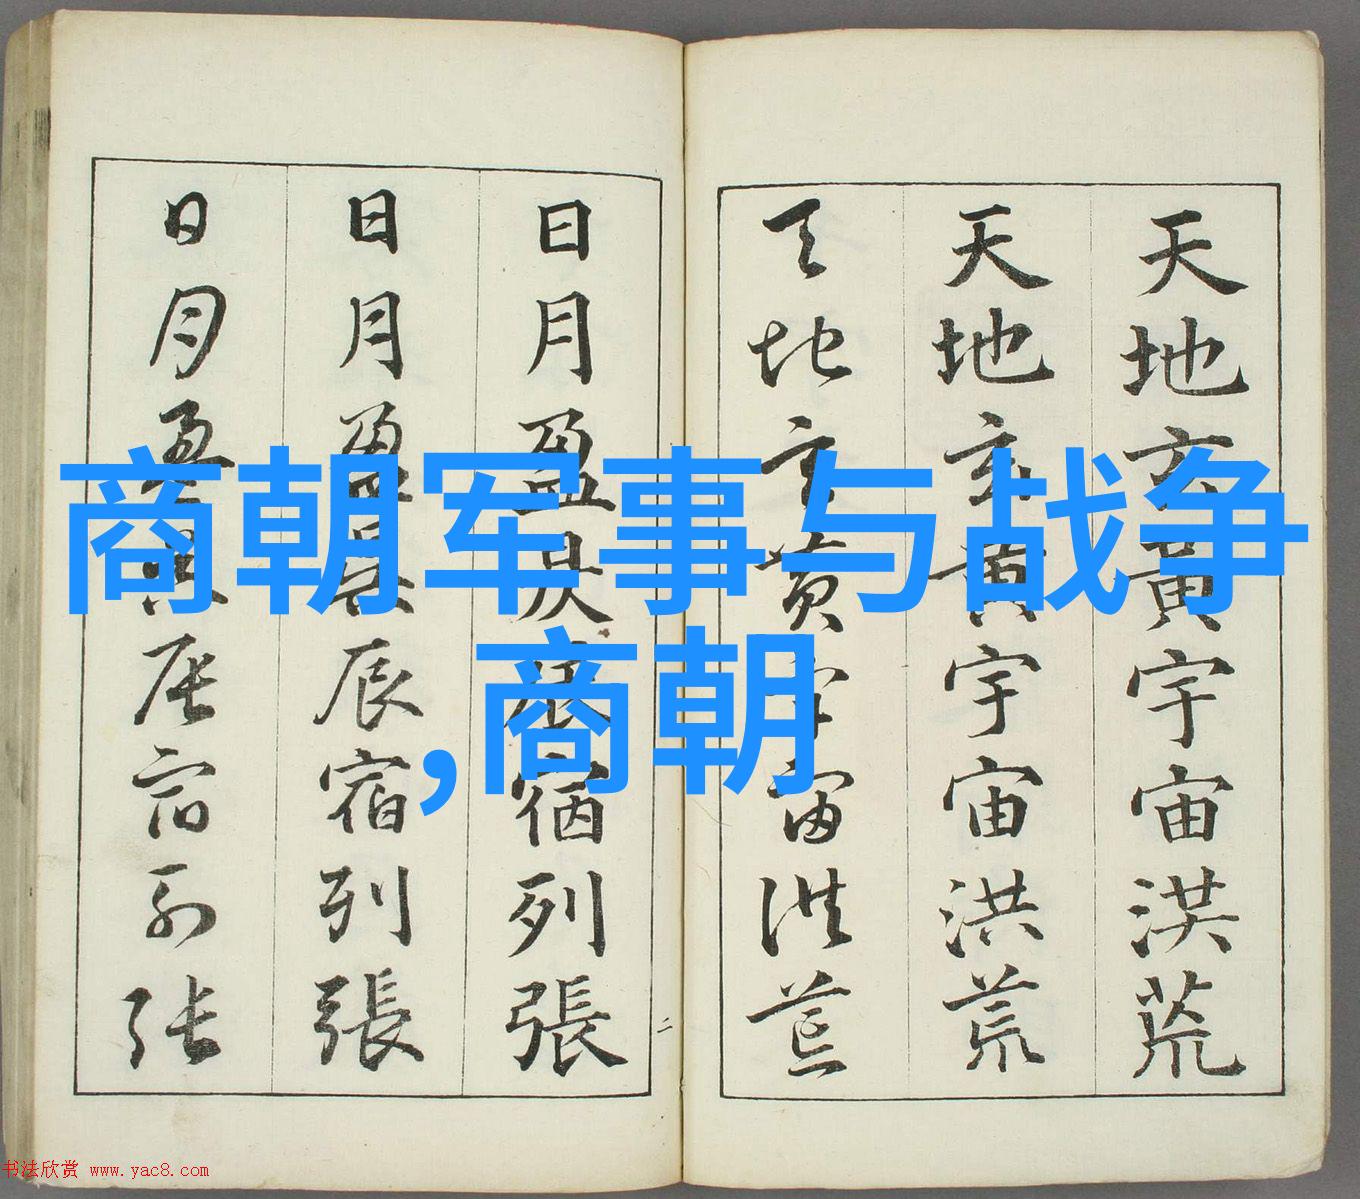 商朝军事与战争
,商朝
天地玄黃宇宙洪荒
天地玄黄宇宙洪荒
天地玄黄宇宙洪荒
日月盈昃辰宿列張
日月盈昃辰宿列張
日月盈昃辰宿列張
二
书法欣赏 www.yac8.com